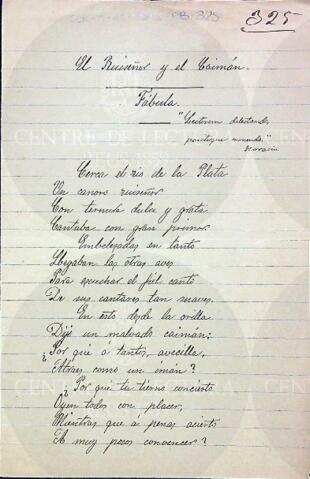 325
El Ruiseñor y el Caimán.
Fábula.
CENTRE DE LECTURA
REUS 1859
Horacio
Cerca el río de la Plata
Un canoro ruiseñor
Con ternura dulce y grata
Cantaba con gran primor.
Embelezadas en tanto
Llegaban las otras aves
Para escuchar el fiel canto
De sus cantares tan suaves.
En esto desde la orilla
Dijo un malvado caimán:
¿Por que á tantos, avecilla,
Atraes como un imán?
¿Por que tu tierno concierto
Oyen todos con placer,
Mientras que á penas acierto
A muy pocos convencer?